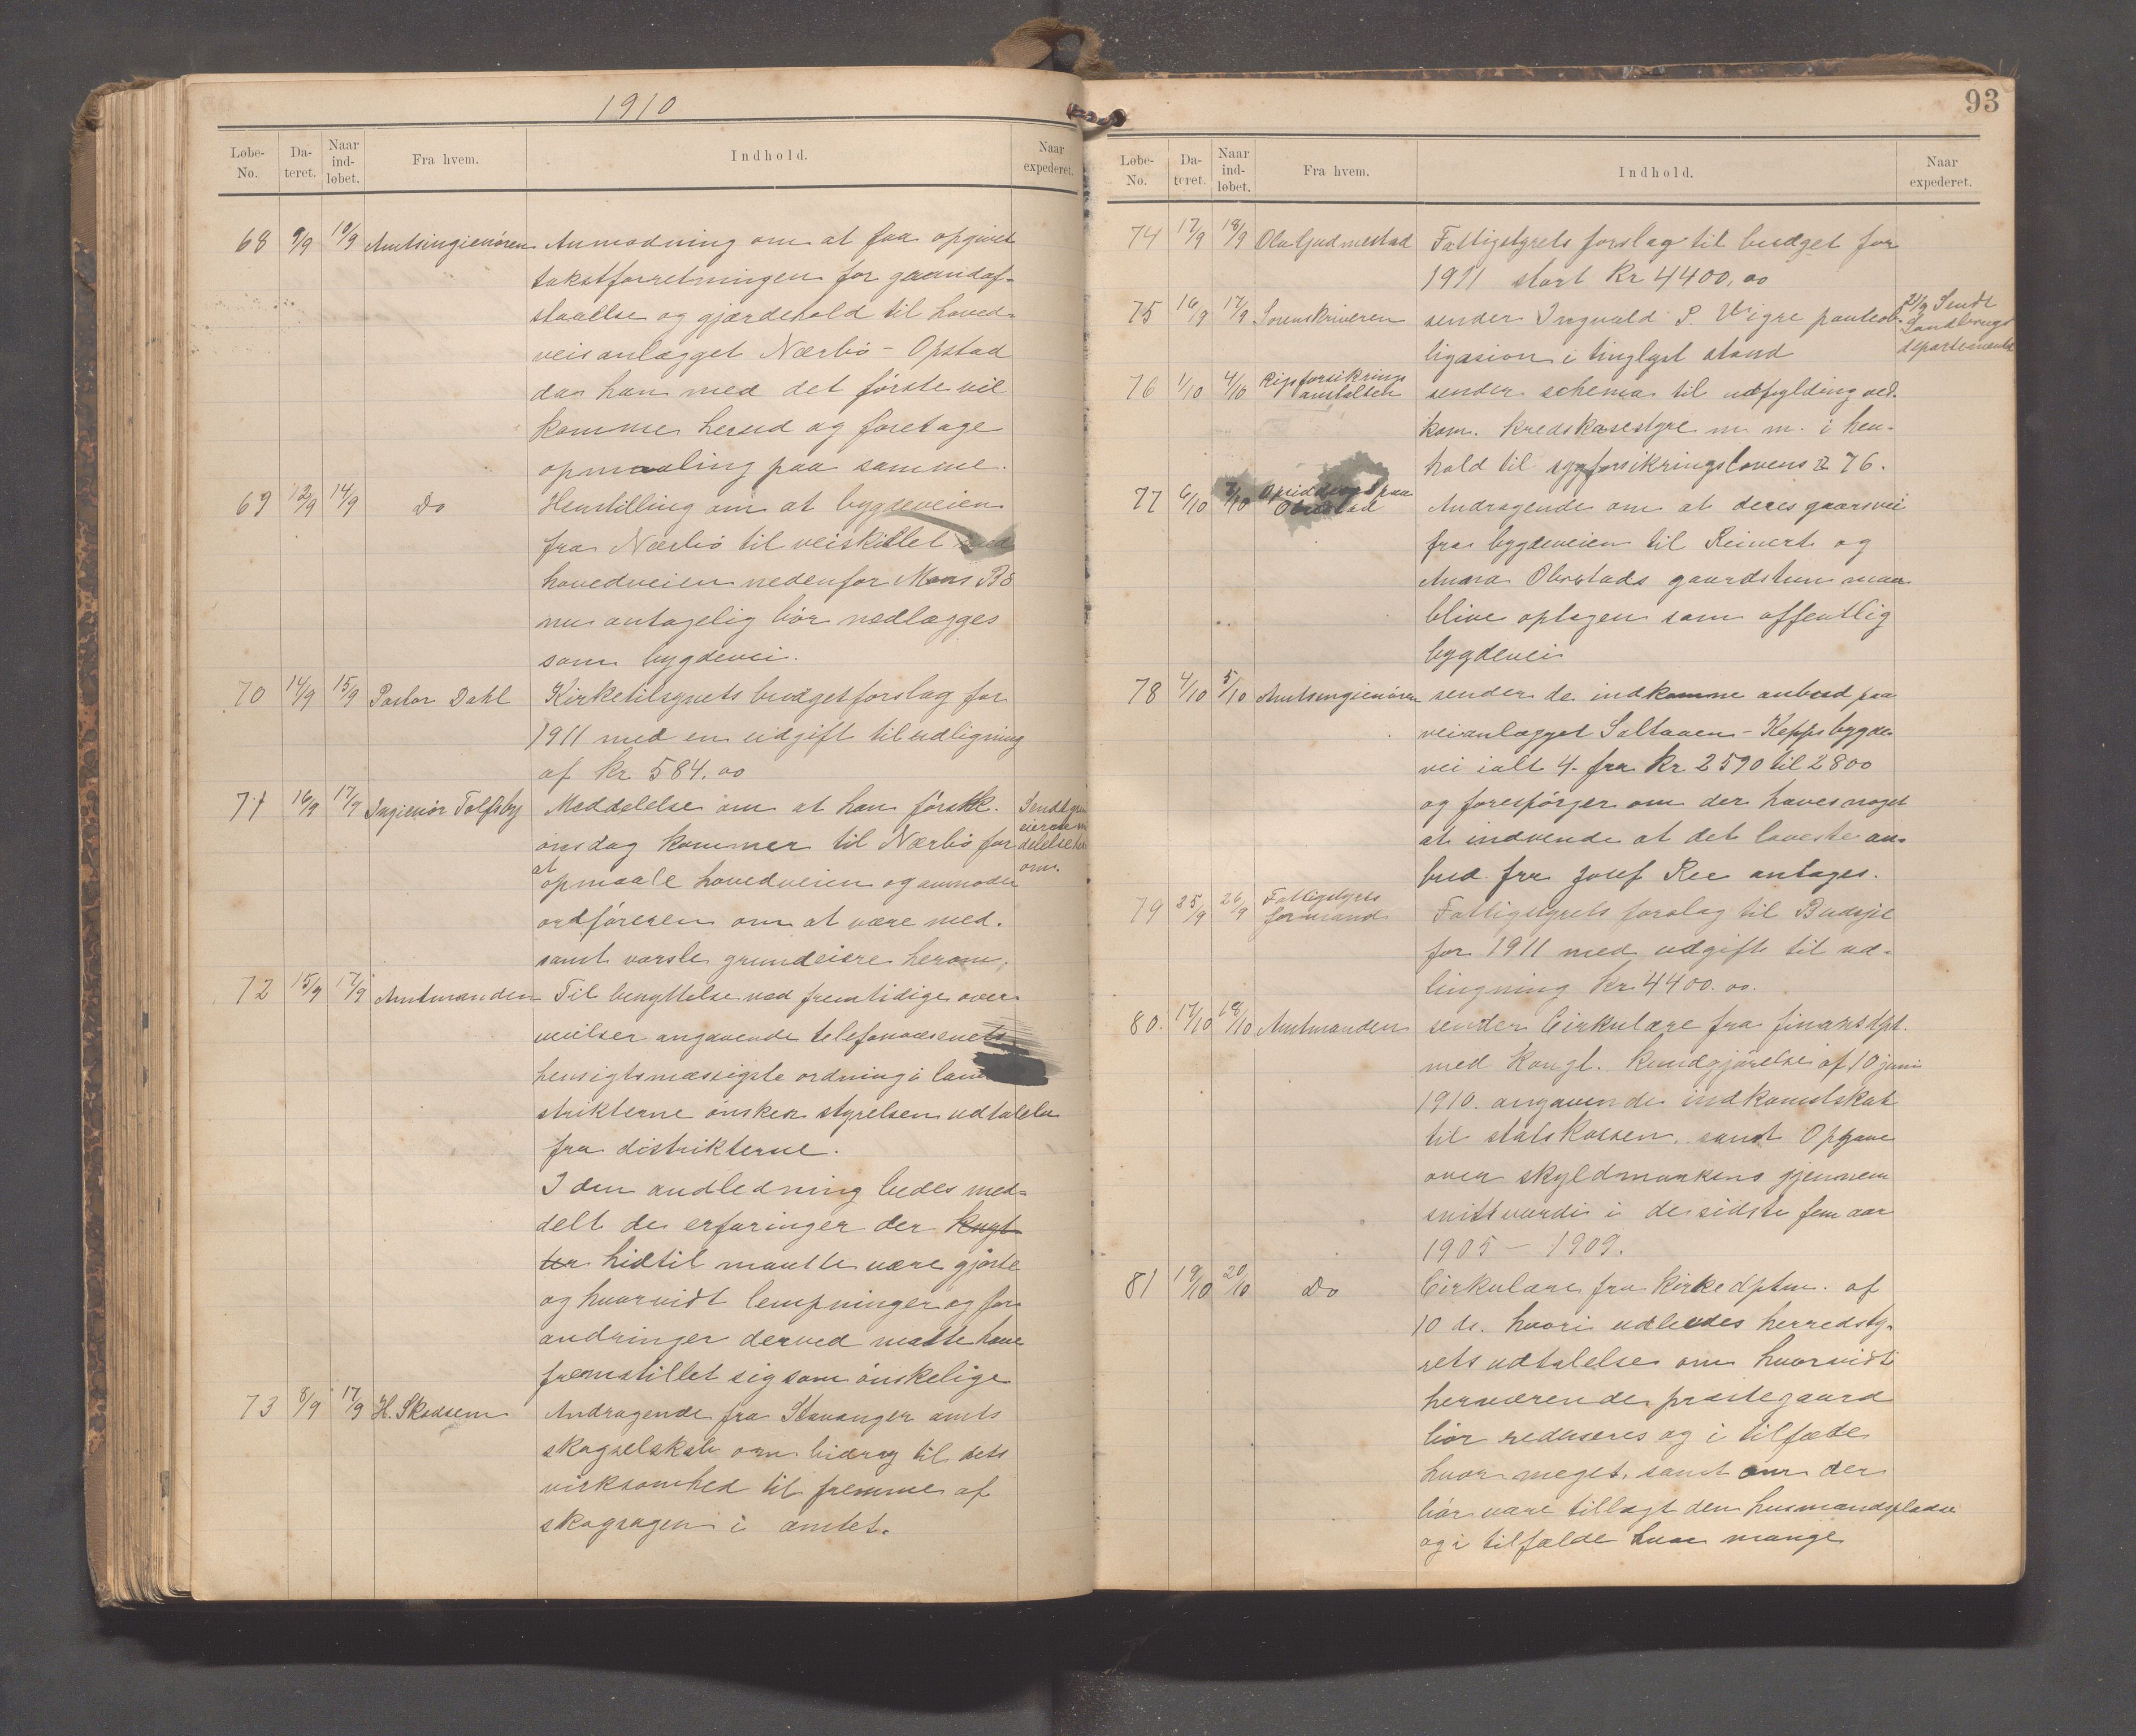 1910
Løbe-No. Da-teret. Naar ind-løbet. Fra hvem. Indhold. Naar expederet.
68 9/9 10/9 Amtsingeniøren Anmodning om at faa opgivet
takstforretningen for grundaf-
staaelse og gjærdehold til hoved-
veisanlægget Nærbö - Opstad
da han med det förste vil
komme herud og foretage
opmaaling paa samme.
69 12/9 14/9 Do Henstilling om at bygdeveien
fra Nærbö til veiskillet med
hovedveien nedenfor Mons Bö
nu antagelig bör nedlægges
som bygdevei.
70 14/9 15/9 Pastor Dahl Kirketilsynets budgetforslag for
1911 med en udgift til udligning
af kr 584.00
71 16/9 17/9 Ingeniör Tolfsby Meddelelse om at han förstk. Sendt
onsdag kommer til Nærbö for
at
opmaale hovedveien og anmoder om.
ordföreren om at være med.
samt varsle grundeiere herom.
72 15/9 17/9 Amtmanden Til benyttelse ved fremtidige over-
veielser angaaende telefonvæsenets
hensigtsmæssigste ordning i
strikterne önsker styrelsen udtalelse
fra distrikterne.
I den andledning bedes med-
delt de erfaringer der
hidtil maatte være gjorte
og hvorvidt lempninger og for-
andringer derved maatte have
fremstillet sig som önskelige
73 8/9 17/9 H. Skadsem Andragende fra Stavanger amts
skogselskab om bidrag til dets
virksomhed til fremme af
skogsagen i amtet.
93
Løbe-No. Da-teret. Naar ind-løbet. Fra hvem. Indhold. Naar expederet.
74 17/9 18/9 Ola Gudmestad Fattigstyrets forslag til budget for
1911 stort Kr 4400,00
75 16/9 17/9 Sorenskriveren sender Ingvald P. Vigre panteob- 21/9 Sendt
ligasion i tinglyst stand Landbrugs
departementet
76 1/10 4/10 Rigsforsikrings sender schema til udfylding ved.
anstalten
kom. kredskasestyre m. m. i hen-
hold til sygforsikringslovens § 76.
77 6/10 7/10 Opsiddere paa Andragende om at deres gaarsvei
Obrestad
fra bygdeveien til Reinert og
Anna Obrestads gaardstun maa
blive optagen som offentlig
bygdevei
78 4/10 5/10 Amtsingeniören sender de indkomne anbud paa
veianlægget Saltaaen - Kepps bygde-
vei ialt 4. fra kr 2590 til 2800
og forespörger om der haves noget
at indvende at det laveste an-
bud fra Josef Ree antages.
79 25/9 26/9 Fattigstyrets
formand Fattigstyrets forslag til Budsjet
for 1911 med udgift til ud-
lingning Kr. 4400.00.
80. 17/10 18/10 Amtmanden sender Cirkulære fra finansdpt.
med Kongl. kundgjörelse af 10 juni
1910. angaaende indkomstskat
til statskassen, samt Opgave
over skyldmarkens gjennem
snitsværdi i de sidste fem aar
1905 - 1909.
81 19/10 20/10 Do Cirkulære fra Kirkedptm. af
10 ds. hvori udbedes herredsty-
rets udtalelse om hvorvidt
herværende prestegaard
bör reduseres og i tilfælde
hvor meget, samt om der
bör være tillagt den husmandspladse
og i tilfælde hvor mange